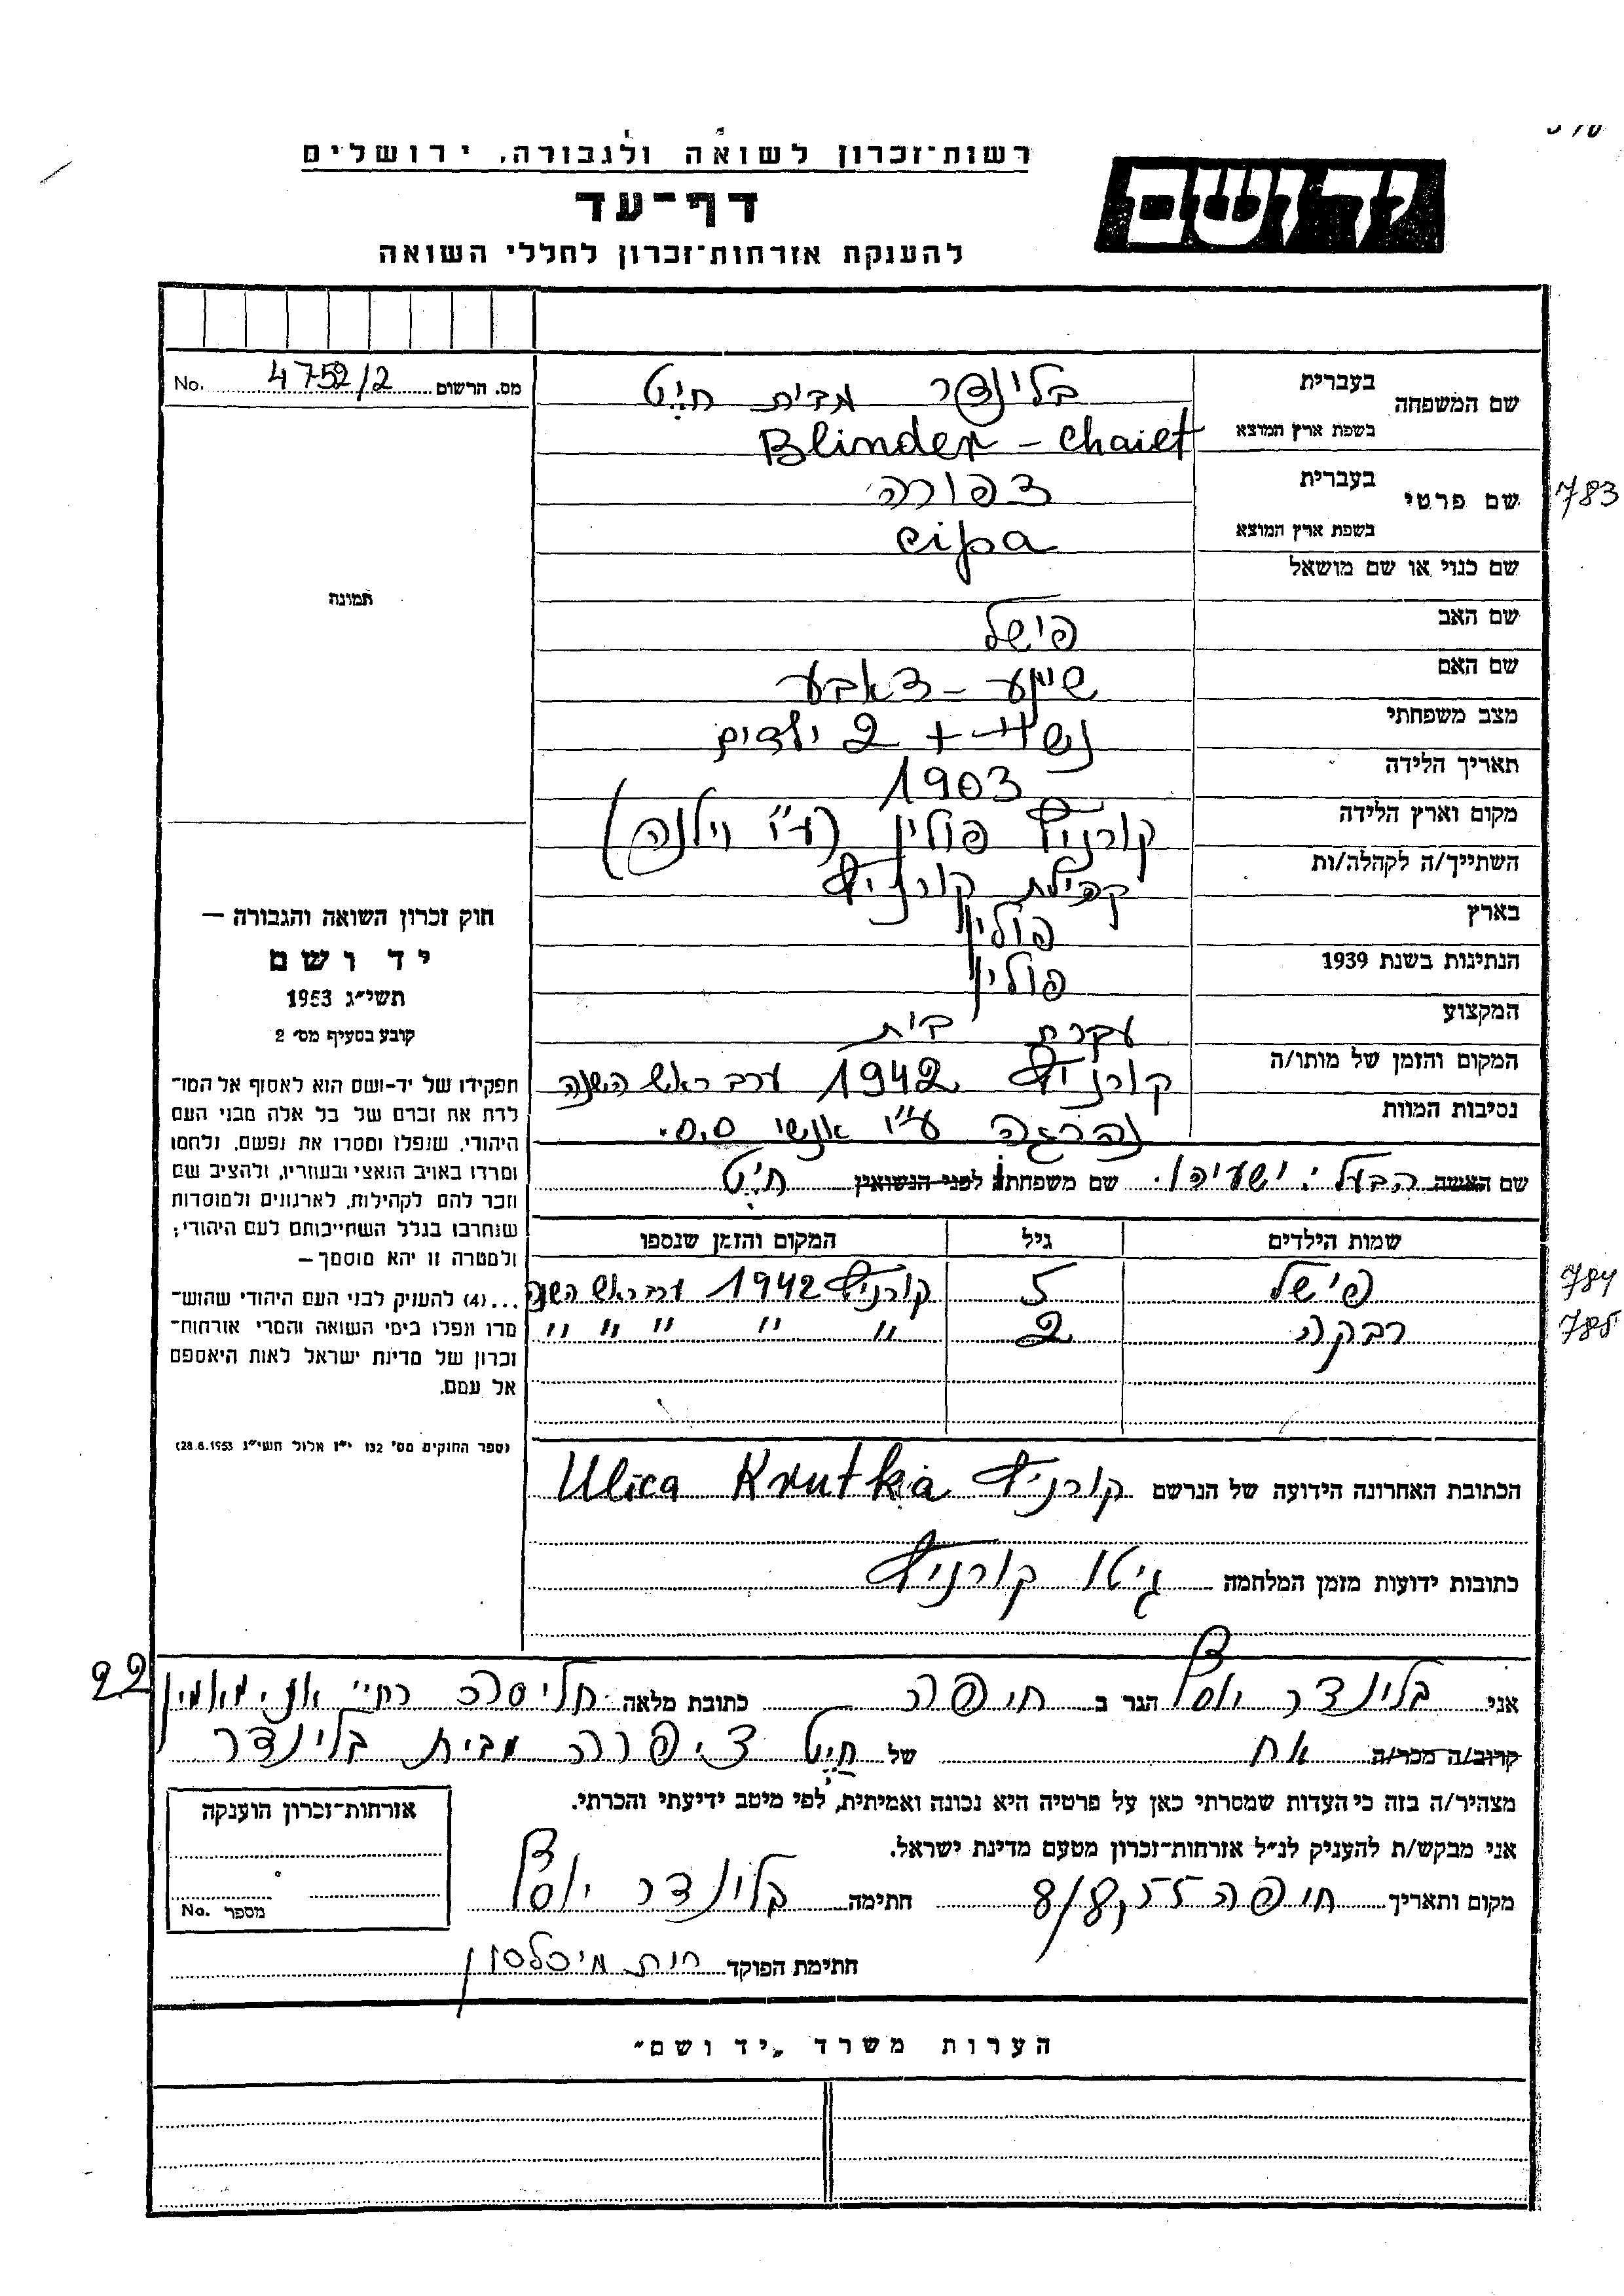 רשות־זכרון לשואה ולגבורה, ירושלים
יד ושם
דף־עד
להענקת אזרחות־זכרון לחללי השואה
מס. הרשום 4752/2 No.
תמונה
שם המשפחה בעברית בלינדר מבית חייט
בשפת ארץ המוצא Blinder – Chaiet
שם פרטי בעברית צפורה
783
בשפת ארץ המוצא cipa
שם כנוי או שם מושאל
שם האב פישל
שם האם שיינע – באבע
מצב משפחתי נשואה + 2 ילדים
תאריך הלידה 1903
מקום וארץ הלידה קורניץ פולין (ע"י וילנה)
השתייך/ה לקהלה/ות קהילת קורניץ
בארץ פולין
הנתינות בשנת 1939 פולין
המקצוע עקרת בית
המקום והזמן של מותו/ה קורניץ 1942 ערב ראש השנה
נסיבות המוות נהרגה ע"י אנשי ס.ס.
שם האשה הבעל: ישעיהו. שם משפחתו לפני הנשואין חייט
שמות הילדים גיל המקום והזמן שנספו
פישל 5 קורניץ 1942 ערב ראש השנה
784
רבקה 2 " " " " "
785
חוק זכרון השואה והגבורה —
יד ושם
תשי״ג 1953
קובע בסעיף מס׳ 2
תפקידו של יד-ושם הוא לאסוף אל המו־
לדת את זכרם של כל אלה מבני העם
היהודי, שנפלו ומסרו את נפשם, נלחמו
ומרדו באויב הנאצי ובעוזריו, ולהציב שם
וזכר להם לקהילות, לארגונים ולמוסדות
שנחרבו בגלל השתייכותם לעם היהודי;
ולמטרה זו יהא מוסמך —
...(4) להעניק לבני העם היהודי שהוש־
מדו ונפלו בימי השואה והמרי אזרחות־
זכרון של מדינת ישראל לאות היאספם
אל עמם.
(ספר החוקים מס׳ 132 י״ז אלול תשי״ג 28.8.1953)
הכתובת האחרונה הידועה של הנרשם קורניץ Ulica Krutka
כתובות ידועות מזמן המלחמה גיטו קורניץ
22
אני בלינדר יוסף הגר ב חיפה כתובת מלאה חליסה רח' אני מאמין
קרוב/ה מכר/ה אח של חייט צפורה מבית בלינדר
מצהיר/ה בזה כי העדות שמסרתי כאן על פרטיה היא נכונה ואמיתית, לפי מיטב ידיעתי והכרתי.
אני מבקש/ת להעניק לנ״ל אזרחות־זכרון מטעם מדינת ישראל.
מקום ותאריך חיפה 8/8,55 חתימה בלינדר יוסף
חתימת הפוקד רות מיכלסון
אזרחות־זכרון הוענקה
מספר No.
הערות משרד „יד ושם"